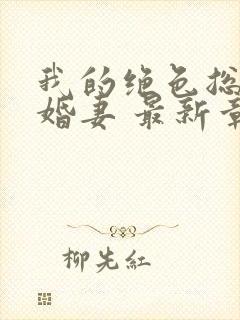 我的绝色总
婚妻 最新章
柳先紅